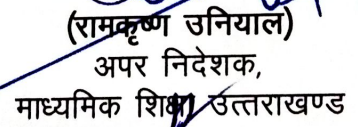 (रामकृष्ण उनियाल)
अपर निदेशक,
माध्यमिक शिक्षा उत्तराखण्ड